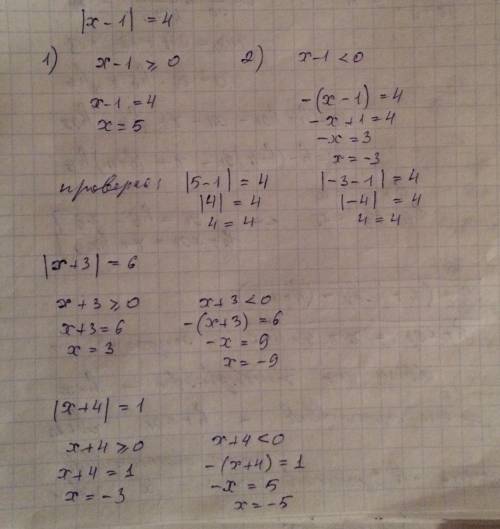 |x-1| = 4
1) x-1 ⩾ 0
x-1 = 4
x = 5
2) x-1 < 0
-(x-1) = 4
-x+1 = 4
-x = 3
x = -3
|5-1| = 4
|4| = 4
4 = 4
|-3-1| = 4
|-4| = 4
4 = 4
|x+3| = 6
x+3 ⩾ 0
x+3 = 6
x = 3
x+3 < 0
-(x+3) = 6
-x = 9
x = -9
|x+4| = 1
x+4 ⩾ 0
x+4 = 1
x = -3
x+4 < 0
-(x+4) = 1
-x = 5
x = -5